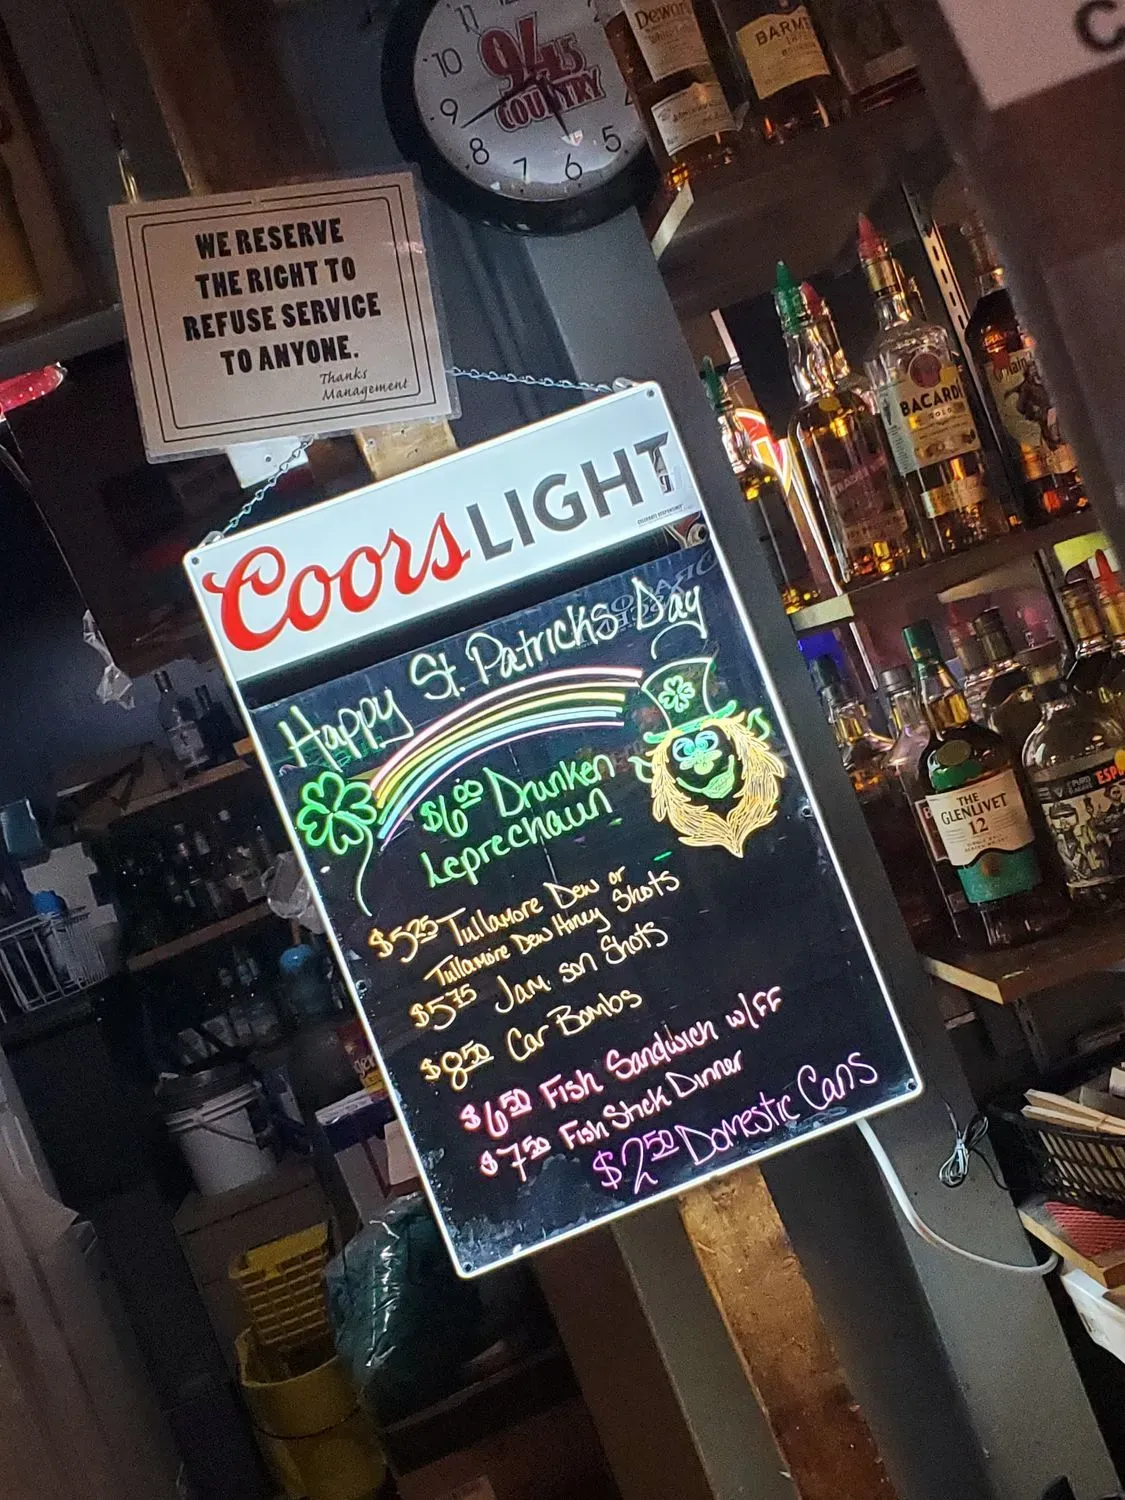 11
10
9
8
7
6
5
94.5
COUNTRY
Dewar's
WE RESERVE
THE RIGHT TO
REFUSE SERVICE
TO ANYONE.
Thanks
Management
Coors LIGHT
Happy St. Patricks Day
$6.00 Drunken
Leprechaun
$5.25 Tullamore Dew or
Tullamore Dew Honey Shots
$5.75 Jam son Shots
$8.50 Car Bombs
$6.50 Fish Sandwich w/FF
$7.50 Fish Stick Dinner
$2.50 Domestic Cans
BACARDI
GOLD
THE
GLENLIVET
12